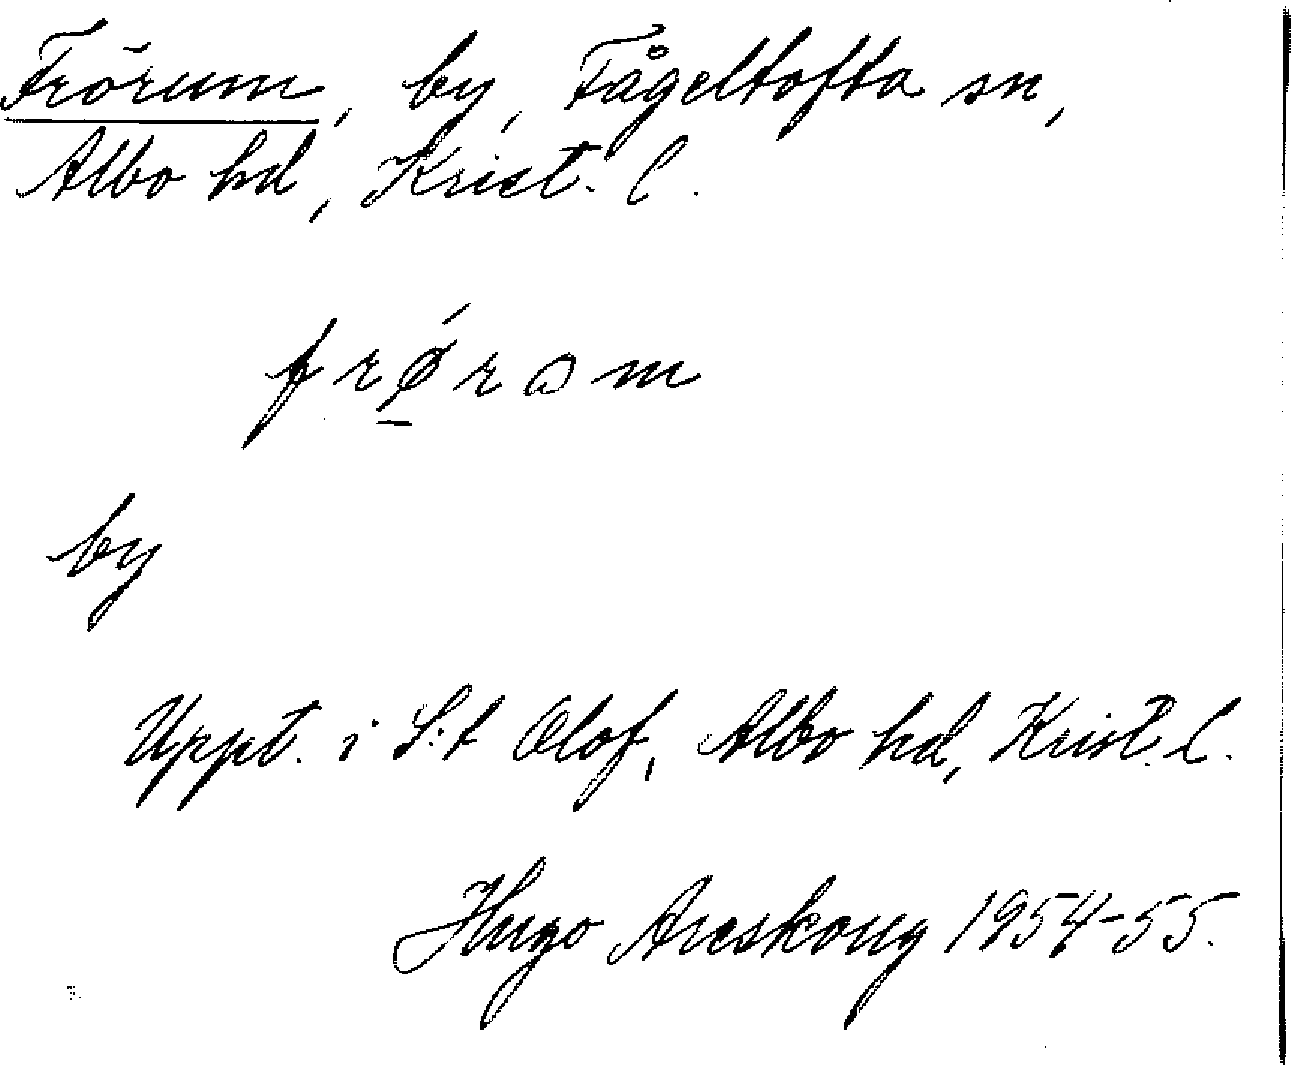 Frörum, by, Fågeltofta sn,
Albo hd, Krist. l.
frǿrɔm
by
Uppt. i S:t Olof, Albo hd, Krist. l.
Hugo Areskoug 1954-55.